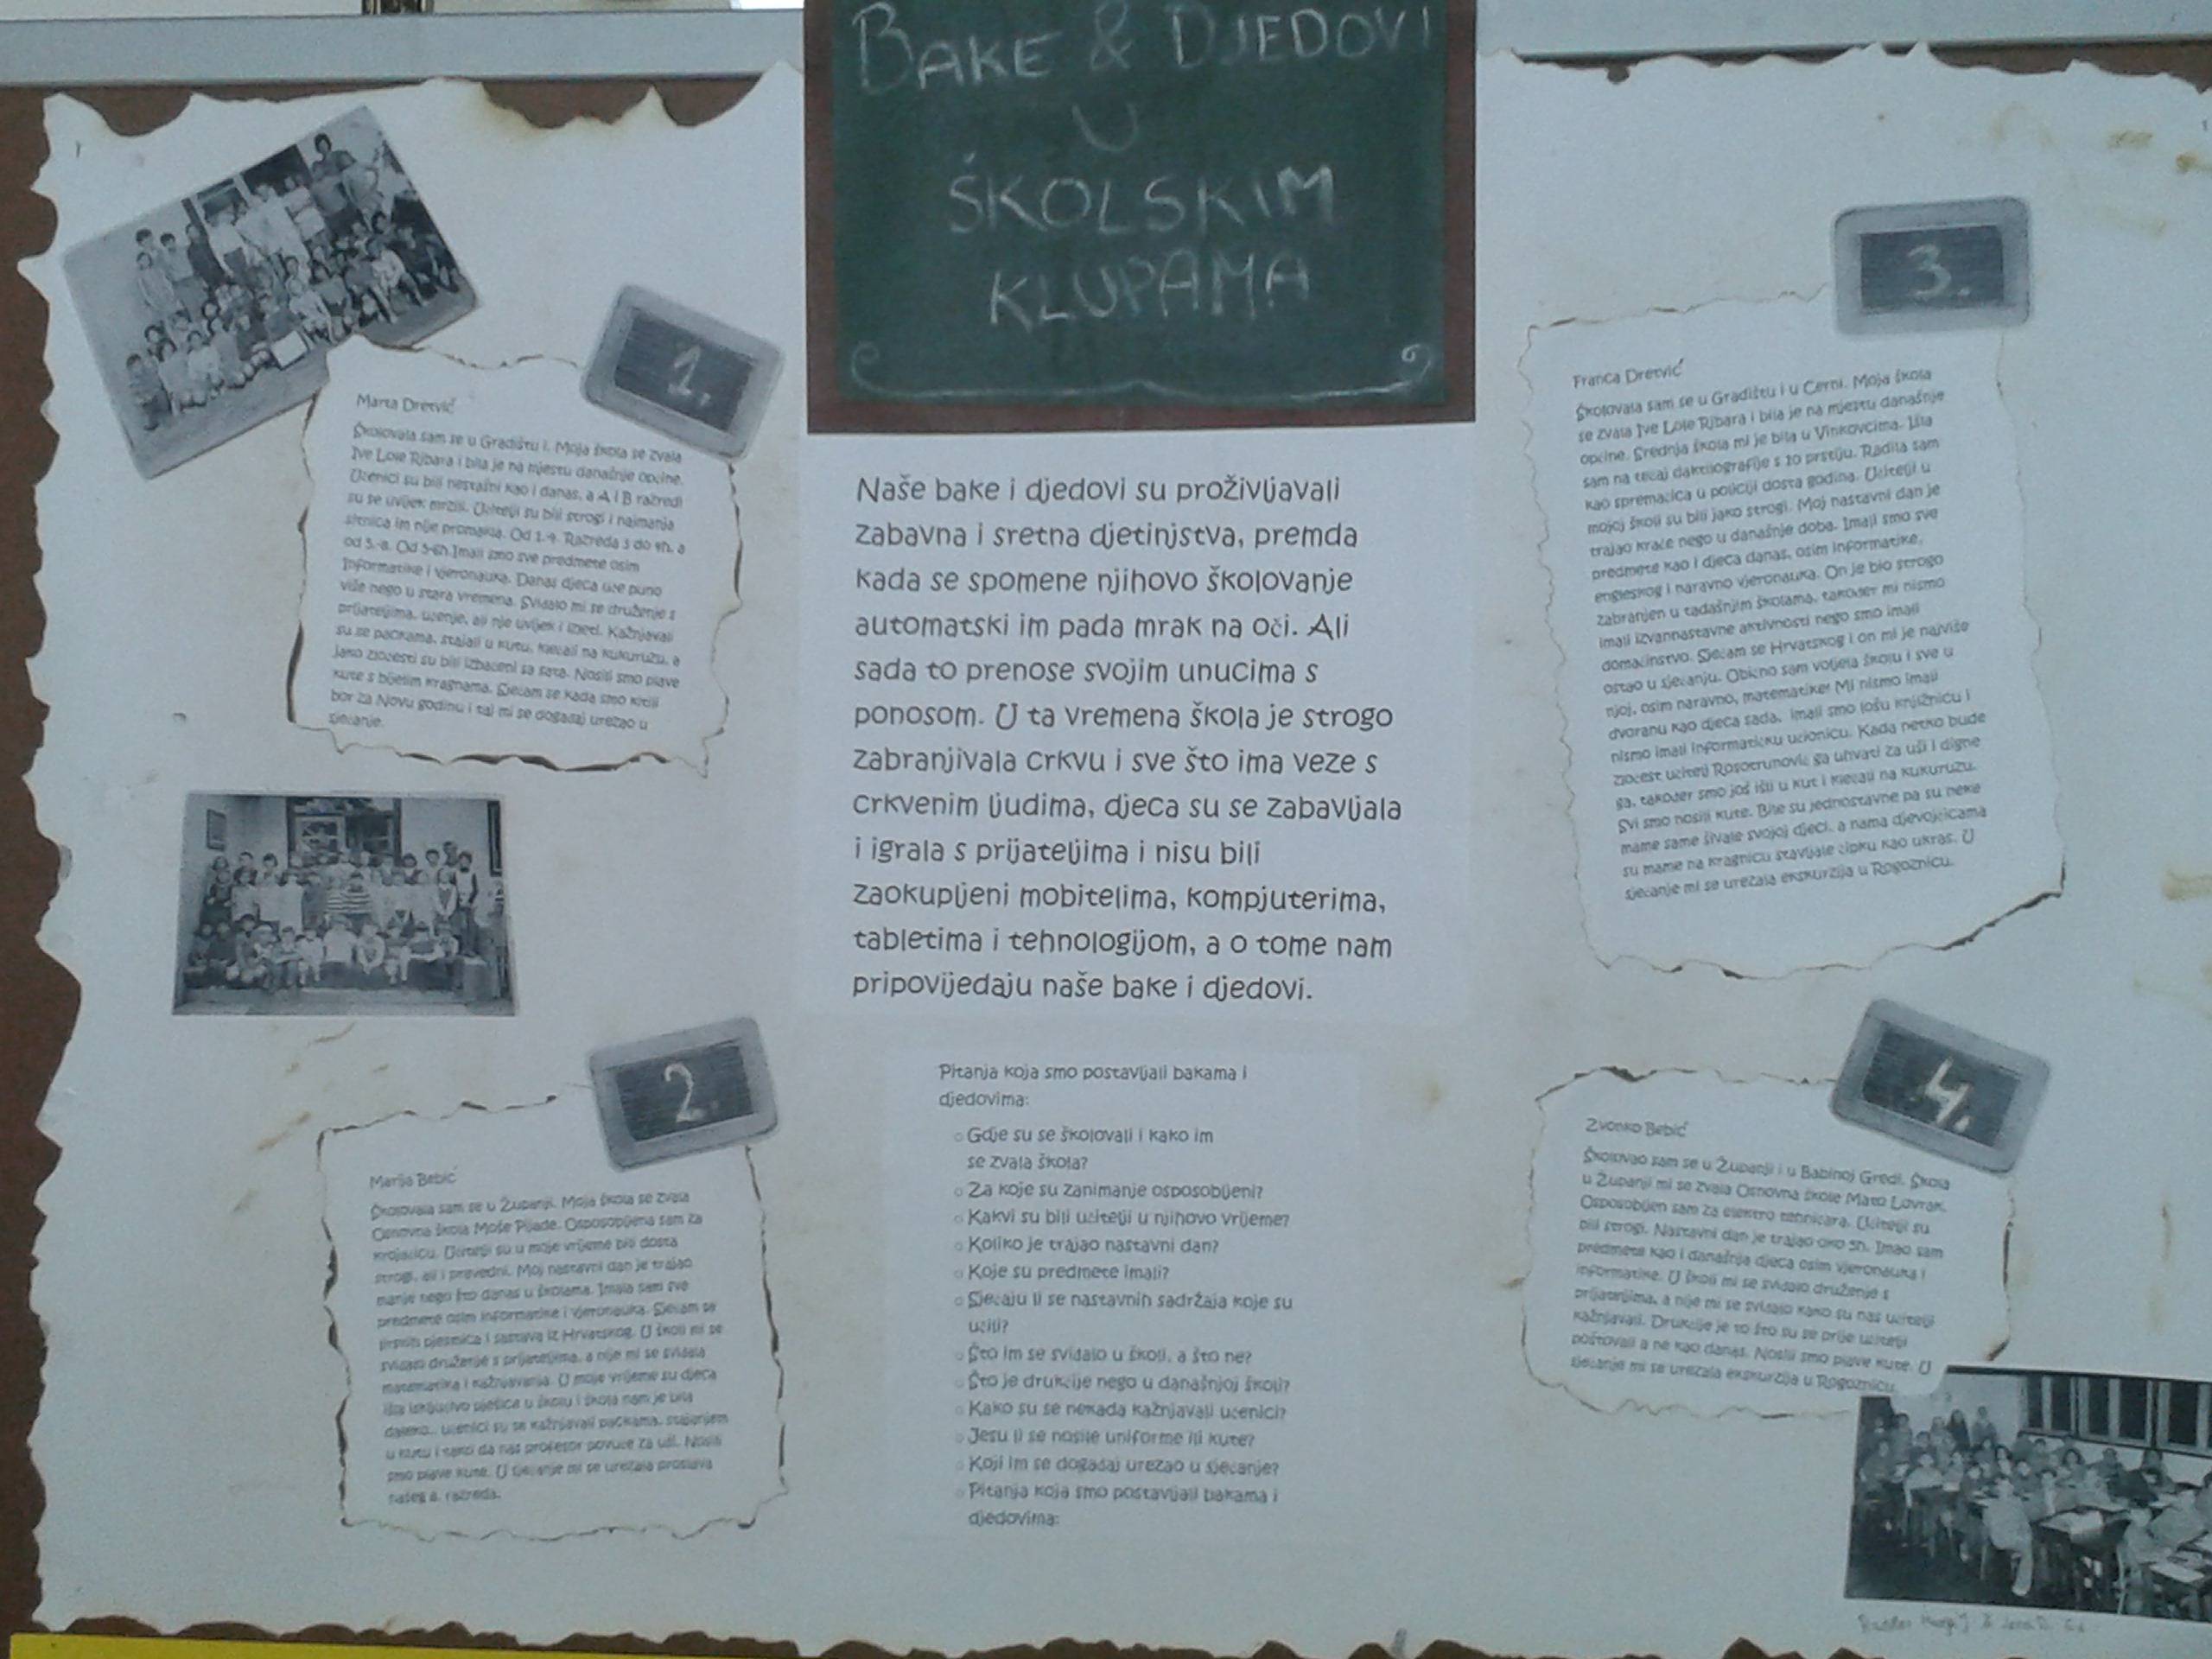 BAKE & DJEDOVI
U
ŠKOLSKIM
KLUPAMA
1.
Marta Dretvić
Školovala sam se u Gradištu i. Moja škola se zvala
Ive Lole Ribara i bila je na mjestu današnje općine.
Učenici su bili nestašni kao i danas, a A i B razredi
su se uvijek mrzili. Učitelji su bili strogi i najmanja
sitnica im nije promakla. Od 1.-4. Razreda 3 do 4h, a
od 5.-8. Od 5-6h.Imali smo sve predmete osim
Informatike i vjeronauka. Danas djeca uče puno
više nego u stara vremena. Sviđalo mi se druženje s
prijateljima, učenje, ali nje uvijek i ispeti. Kažnjavali
su se packama, stajali u kutu, klečali na kukuruzu, a
jako zločesti su bili izbačeni sa sata. Nosili smo plave
kute s bijelim kragnama. Sjećam se kada smo kitili
bor za Novu godinu i taj mi se događaj urezao u
sjećanje.
2.
Marija Bebić
Školovala sam se u Županji. Moja škola se zvala
Osnovna škola Moše Pijade. Osposobljena sam za
krojačicu. Učitelji su u moje vrijeme bili dosta
strogi, ali i pravedni. Moj nastavni dan je trajao
manje nego što danas u školama. Imala sam sve
predmete osim informatike i vjeronauka. Sjećam se
lirskih pjesmica i sastava iz Hrvatskog. U školi mi se
sviđalo druženje s prijateljima, a nije mi se sviđala
matematika i kažnjavanja. U moje vrijeme su djeca
išla isključivo pješice u školu i škola nam je bila
daleko.. učenici su se kažnjavali packama, stajanjem
u kutu i tako da nas profesor povuče za uši. Nosili
smo plave kute. U sjećanje mi se urezala proslava
našeg 8. razreda.
Naše bake i djedovi su proživljavali
zabavna i sretna djetinjstva, premda
kada se spomene njihovo školovanje
automatski im pada mrak na oči. Ali
sada to prenose svojim unucima s
ponosom. U ta vremena škola je strogo
zabranjivala crkvu i sve što ima veze s
crkvenim ljudima, djeca su se zabavljala
i igrala s prijateljima i nisu bili
zaokupljeni mobitelima, kompjuterima,
tabletima i tehnologijom, a o tome nam
pripovijedaju naše bake i djedovi.
Pitanja koja smo postavljali bakama i
djedovima:
Gdje su se školovali i kako im
se zvala škola?
Za koje su zanimanje osposobljeni?
Kakvi su bili učitelji u njihovo vrijeme?
Koliko je trajao nastavni dan?
Koje su predmete imali?
Sjećaju li se nastavnih sadržaja koje su
učili?
Što im se sviđalo u školi, a što ne?
Što je drukčije nego u današnjoj školi?
Kako su se nekada kažnjavali učenici?
Jesu li se nosile uniforme ili kute?
Koji im se događaj urezao u sjećanje?
Pitanja koja smo postavljali bakama i
djedovima:
3.
Franca Dretvić
Školovala sam se u Gradištu i u Cerni. Moja škola
se zvala Ive Lole Ribara i bila je na mjestu današnje
općine. Srednja škola mi je bila u Vinkovcima. Išla
sam na tečaj daktilografije s 10 prstiju. Radila sam
kao spremačica u policiji dosta godina. Učitelji u
mojoj školi su bili jako strogi. Moj nastavni dan je
trajao kraće nego u današnje doba. Imali smo sve
predmete kao i djeca danas, osim informatike,
engleskog i naravno vjeronauka. On je bio strogo
zabranjen u tadašnjim školama, također mi nismo
imali izvannastavne aktivnosti nego smo imali
domaćinstvo. Sjećam se Hrvatskog i on mi je najviše
ostao u sjećanju. Obično sam voljela školu i sve u
njoj, osim naravno, matematike! Mi nismo imali
dvoranu kao djeca sada, imali smo lošu knjižnicu i
nismo imali informatičku učionicu. Kada netko bude
zločest učitelj Rosotrunović ga uhvati za uši i digne
ga, također smo još išli u kut i klečali na kukuruzu.
Svi smo nosili kute. Bile su jednostavne pa su neke
mame same šivale svojoj djeci, a nama djevojčicama
su mame na kragnicu stavljale čipku kao ukras. U
sjećanje mi se urezala ekskurzija u Rogoznicu.
4.
Zvonko Bebić
Školovao sam se u Županji i u Babinoj Gredi. Škola
u Županji mi se zvala Osnovna škole Mato Lovrak.
Osposobljen sam za elektro tehničara. Učitelji su
bili strogi. Nastavni dan je trajao oko 5h. Imao sam
predmete kao i današnja djeca osim vjeronauka i
informatike. U školi mi se sviđalo druženje s
prijateljima, a nije mi se sviđalo kako su nas učitelji
kažnjavali. Drukčije je to što su se prije učitelji
poštovali a ne kao danas. Nosili smo plave kute. U
sjećanje mi se urezala ekskurzija u Rogoznicu.